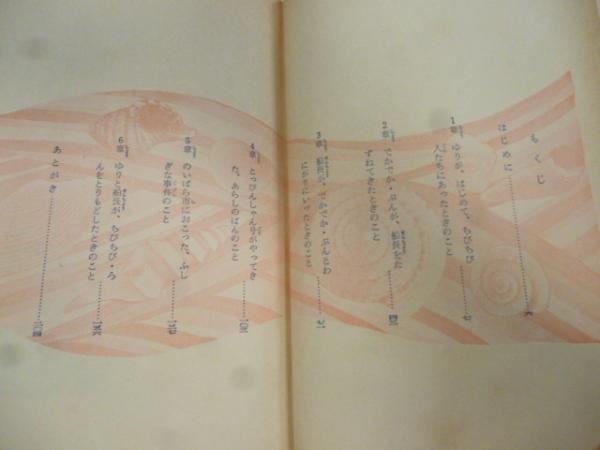 もくじ
はじめに…………六
1章 ゆりが、はじめて、ちびちび
人たちにあったときのこと…………七
2章 でかでか・ぶんが、船長をた
ずねてきたときのこと…………
3章 船長が、でかでか・ぶんとわ
にがりにいったときのこと…………
4章 とっぴんしゃん号がやってき
た、あらしのばんのこと…………
5章 のいばら市におこった、ふし
ぎな事件のこと…………
6章 ゆりと船長が、ちびちび・ろ
んをとりもどしたときのこと…………
あとがき…………